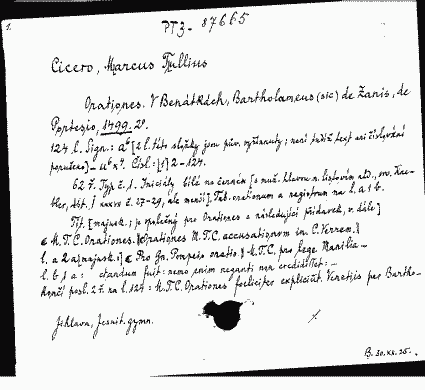 1.
PT3- 87665
Cicero, Marcus Tullius
Orationes. V Benátkách, Bartholameus (sic) de Zanis, de
Portesio, 1499. 2º.
124 l. Sign.: a⁶ [2 l. této složky jsou pův. vyříznuty; není tudíž text ani číslování
porušeno] - u⁶ x⁴. Čísl.: [1] 2 - 124.
62 ř. Typ č. 1. Iniciály bílé na černém [s muž. hlavou n. listovím
27-29, ale menší]. Tab. orationum a registrum na l. a 1 b.
Tit. [majusk.; je společný pro Orationes a následující přídavek, v. dále]
M. T. C. Orationes. Orationes M. T. C. accusationum in C. Verrem.
l. a 2 a [majusk.:] Pro Gn. Pompeio oratio. M. T. C. pro lege Manilia
l. b 1 a: ctandum fuit: nemo enim neganti non credidisset:
Končí posl. 2 ř. na l. 124: M. T. C. Orationes foeliciter expliciunt. Venetijs per Bartho-
Jihlava, Jesuit. gymn.
B. 30. XII. 25.